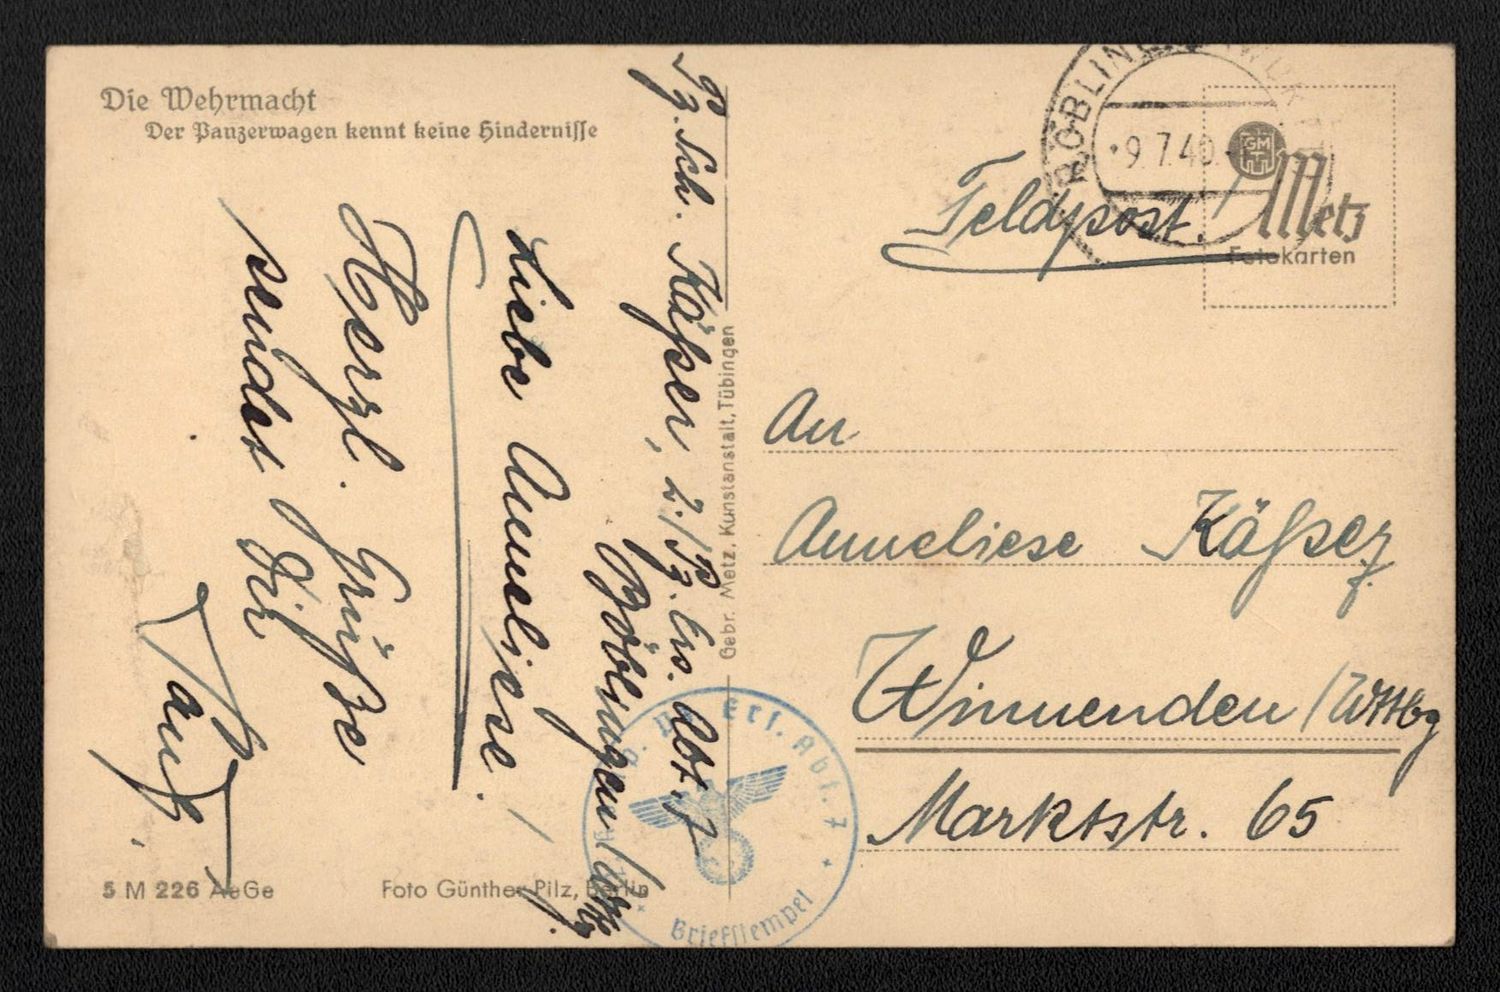 Die Wehrmacht
Der Panzerwagen kennt keine Hindernisse
Pz. Sch. Käßer, 2./Pz. Ers. Abt. 7
Böblingen/Wttbg
Liebe Anneliese!
Herzl. Grüße
sendet Dir
5 M 226 AeGe
Foto Günther Pilz, Berlin
Gebr. Metz, Kunstanstalt, Tübingen
BÖBLINGEN
9.7.40.
Feldpost.
GM
Metz
Fotokarten
An
Anneliese Käßer
Winnenden/Wttbg
Marktstr. 65
Pz. Ers. Abt. 7
Briefstempel